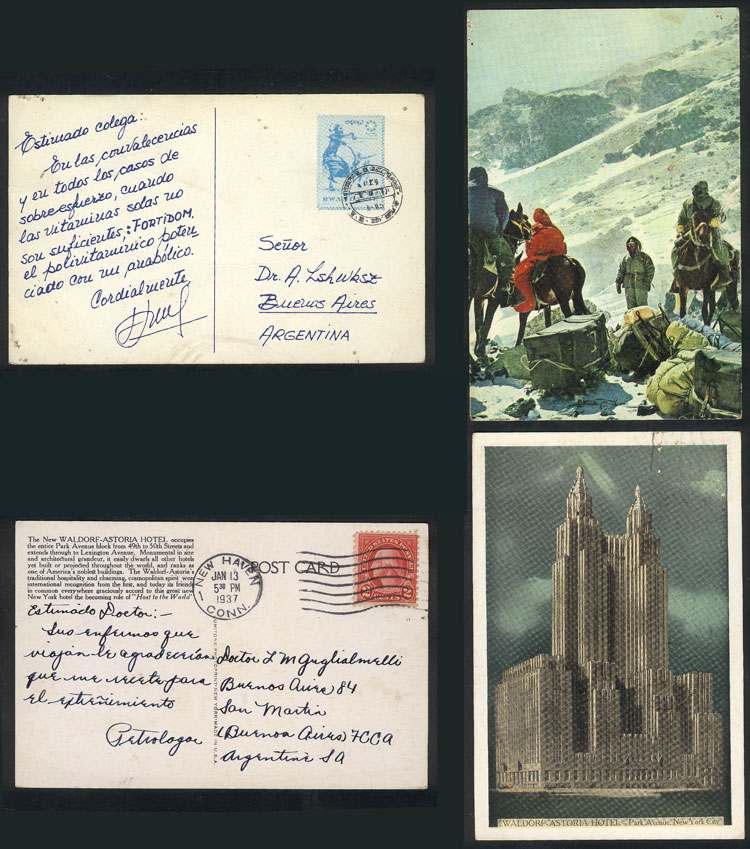 Estimado colega:
En las convalecencias
y en todos los casos de
sobreesfuerzo, cuando
las vitaminas solas no
son suficientes: FORTIDOM,
el polivitamínico poten
ciado con un anabólico.
Cordialmente
Señor
Dr. A. Lshwksz
Buenos Aires
ARGENTINA
The New WALDORF-ASTORIA HOTEL occupies
the entire Park Avenue block from 49th to 50th Streets and
extends through to Lexington Avenue. Monumental in size
and architectural grandeur, it easily dwarfs all other hotels
yet built or projected throughout the world, and ranks as
one of America's noblest buildings. The Waldorf-Astoria's
traditional hospitality and charming, cosmopolitan spirit won
international recognition from the first, and today its friends
in common everywhere graciously accord to this great new
New York hotel the becoming role of "Host to the World"
POST CARD
NEW HAVEN
JAN 13
5 PM
1937
CONN.
1
Estimado Doctor:-
Sus enfermos que
viajan le agradecerían
que me recete para
el estreñimiento
Petrolagar
Doctor L M Guglialmelli
Buenos Aires 84
San Martin
(Buenos Aires) FCCA
Argentine SA
WALDORF-ASTORIA HOTEL - Park Avenue, New York City